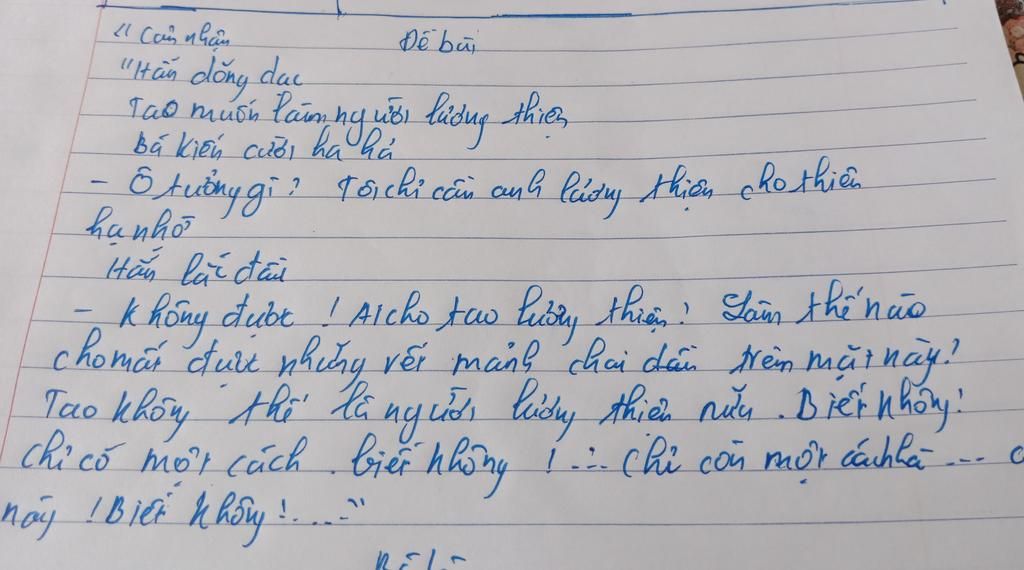 "Cảm nhận Đề bài
"Hắn dõng dạc
Tao muốn làm người lương thiện
Bá Kiến cười ha hả
- Ồ tưởng gì? Tôi chỉ cần anh lương thiện cho thiên
hạ nhờ
Hắn lắc đầu
- Không được! Ai cho tao lương thiện? Làm thế nào
cho mất được những vết mảnh chai dần trên mặt này?
Tao không thể là người lương thiện nữa. Biết không!
chỉ có một cách. biết không!... Chỉ còn một cách là ... c
này! Biết không!....."